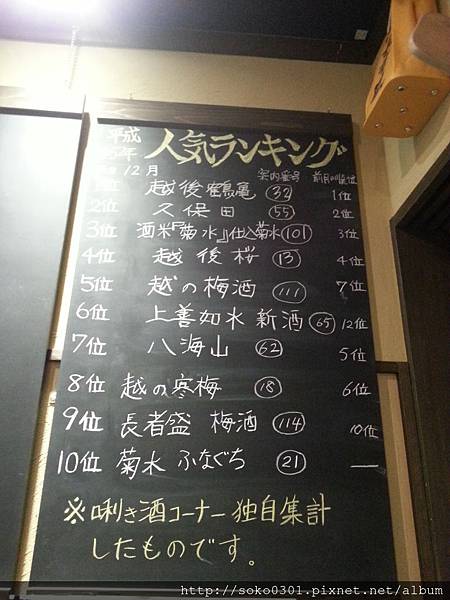 平成
年 人気ランキング
12月 案内番号 前月の順位
1位 越後鶴亀 32 1位
2位 久保田 55 2位
3位 酒米『菊水』仕込菊水 101 3位
4位 越後桜 13 4位
5位 越の梅酒 111 7位
6位 上善如水 新酒 65 12位
7位 八海山 62 5位
8位 越の寒梅 18 6位
9位 長者盛 梅酒 114 10位
10位 菊水 ふなぐち 21 —
※唎き酒コーナー独自集計
したものです。
http://soko0301.pixnet.net/album